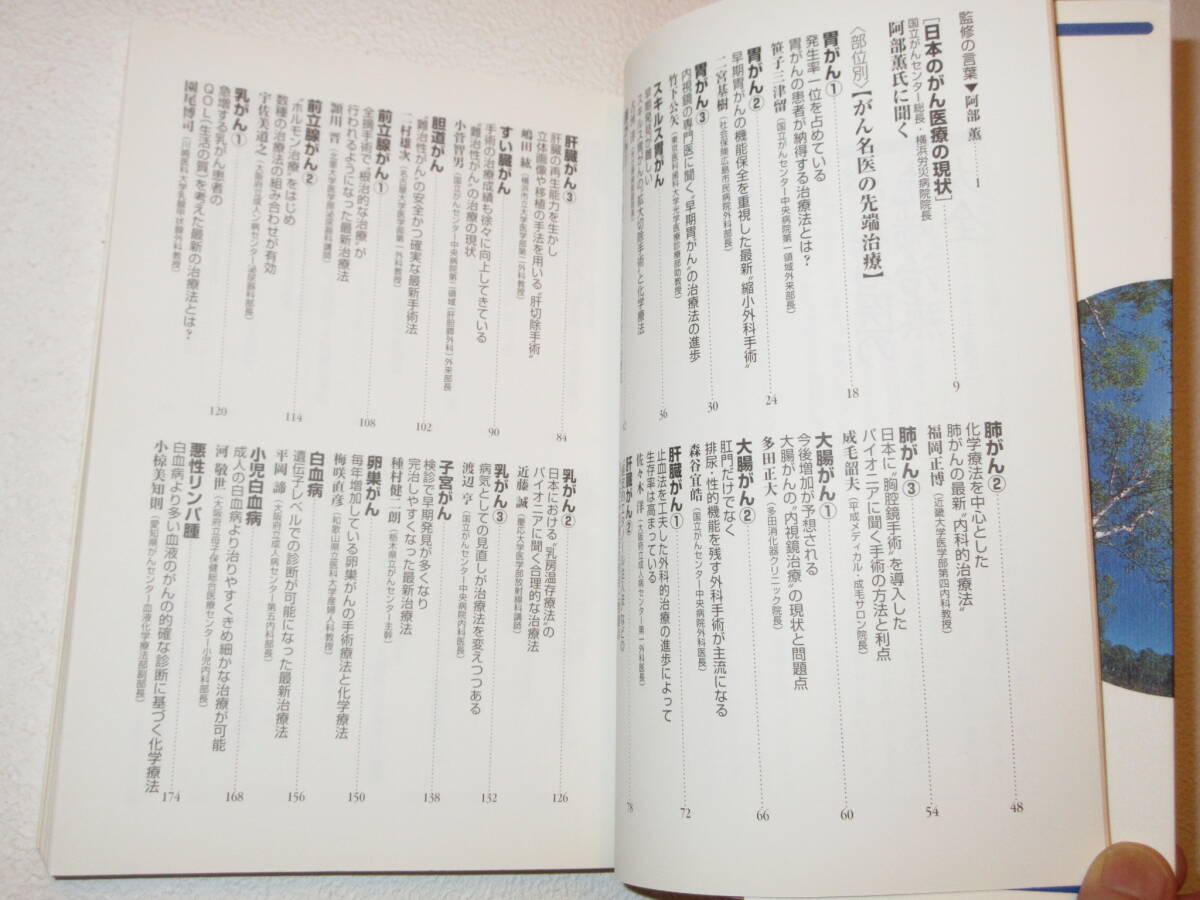 監修の言葉▼阿部 薫 1
[日本のがん医療の現状]
国立がんセンター総長・横浜労災病院院長
阿部薫氏に聞く 9
〈部位別〉【がん名医の先端治療】
胃がん①
発生率一位を占めている
胃がんの患者が納得する治療法とは? 18
笹子三津留(国立がんセンター中央病院第一領域外来部長)
胃がん②
早期胃がんの機能保全を重視した最新"縮小外科手術" 24
二宮基樹(社会保険広島市民病院外科部長)
胃がん③
内視鏡の専門医に聞く"早期胃がん"の治療法の進歩 30
竹下公矢(東京医科歯科大学光学医療診療部助教授)
スキルス胃がん
早期発見が難しい
スキルス胃がんの"拡大切除手術"と化学療法 36
肺がん②
化学療法を中心とした
肺がんの最新"内科的治療法" 48
福岡正博(近畿大学医学部第四内科教授)
肺がん③
日本に"胸腔鏡手術"を導入した
パイオニアに聞く手術の方法と利点 54
成毛韶夫(平成メディカル・成毛サロン院長)
大腸がん①
今後増加が予想される
大腸がんの"内視鏡治療"の現状と問題点 60
多田正大(多田消化器クリニック院長)
大腸がん②
肛門だけでなく
排尿・性的機能を残す外科手術が主流になる 66
森谷宜皓(国立がんセンター中央病院外科医長)
肝臓がん①
止血法を工夫した外科的治療の進歩によって
生存率は高まっている 72
佐々木洋(大阪府立成人病センター第一外科医長)
肝臓がん②
78
肝臓がん③
肝臓の再生能力を生かし
立体画像や移植の手法を用いる"肝切除手術" 84
嶋田紘(横浜市立大学医学部第二外科教授)
すい臓がん
手術の治療成績も徐々に向上してきている
"難治性がん"の治療の現状 90
小菅智男(国立がんセンター中央病院第二領域[肝胆膵外科]外来部長)
胆道がん
"難治性がん"の安全かつ確実な最新手術法 102
二村雄次(名古屋大学医学部第一外科教授)
前立腺がん①
全摘手術で"根治的な治療"が
行われるようになった最新治療法 108
頴川晋(北里大学医学部泌尿器科講師)
前立腺がん②
"ホルモン療法"をはじめ
数種の治療法の組み合わせが有効 114
宇佐美道之(大阪府立成人病センター泌尿器科部長)
乳がん①
急増する乳がん患者の
QOL(生活の質)を考えた最新の治療法とは? 120
園尾博司(川崎医科大学乳腺甲状腺外科教授)
乳がん②
日本における"乳房温存療法"の
パイオニアに聞く合理的な治療法 126
近藤誠(慶応大学医学部放射線科講師)
乳がん③
病気としての見直しが治療法を変えつつある 132
渡辺亨(国立がんセンター中央病院内科医長)
子宮がん
検診で早期発見が多くなり
完治しやすくなった最新治療法 138
種村健二朗(栃木県立がんセンター主幹)
卵巣がん
毎年増加している卵巣がんの手術療法と化学療法 150
梅咲直彦(和歌山県立医科大学産婦人科教授)
白血病
遺伝子レベルでの診断が可能になった最新治療法 156
平岡諦(大阪府立成人病センター第五内科部長)
小児白血病
成人の白血病より治りやすくきめ細かな治療が可能 168
河敬世(大阪府立母子保健総合医療センター小児内科部長)
悪性リンパ腫
白血病より多い血液のがんの的確な診断に基づく化学療法 174
小椋美知則(愛知県がんセンター血液化学療法部副部長)